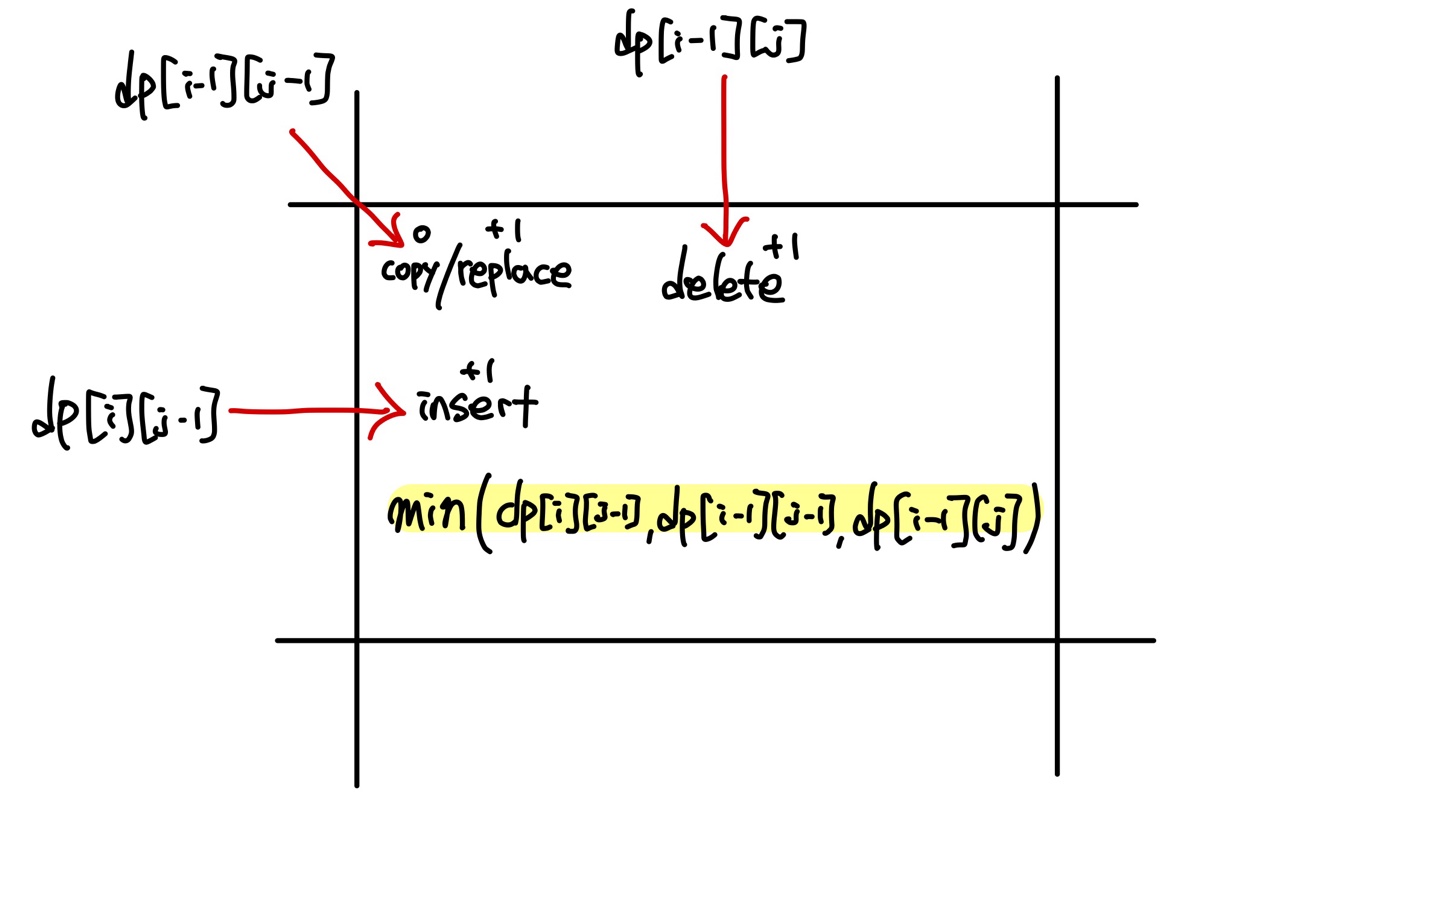 dp[i-1][j]
dp[i-1][j-1]
0 +1
copy/replace
+1
delete
+1
insert
dp[i][j-1]
min(dp[i][j-1], dp[i-1][j-1], dp[i-1][j])